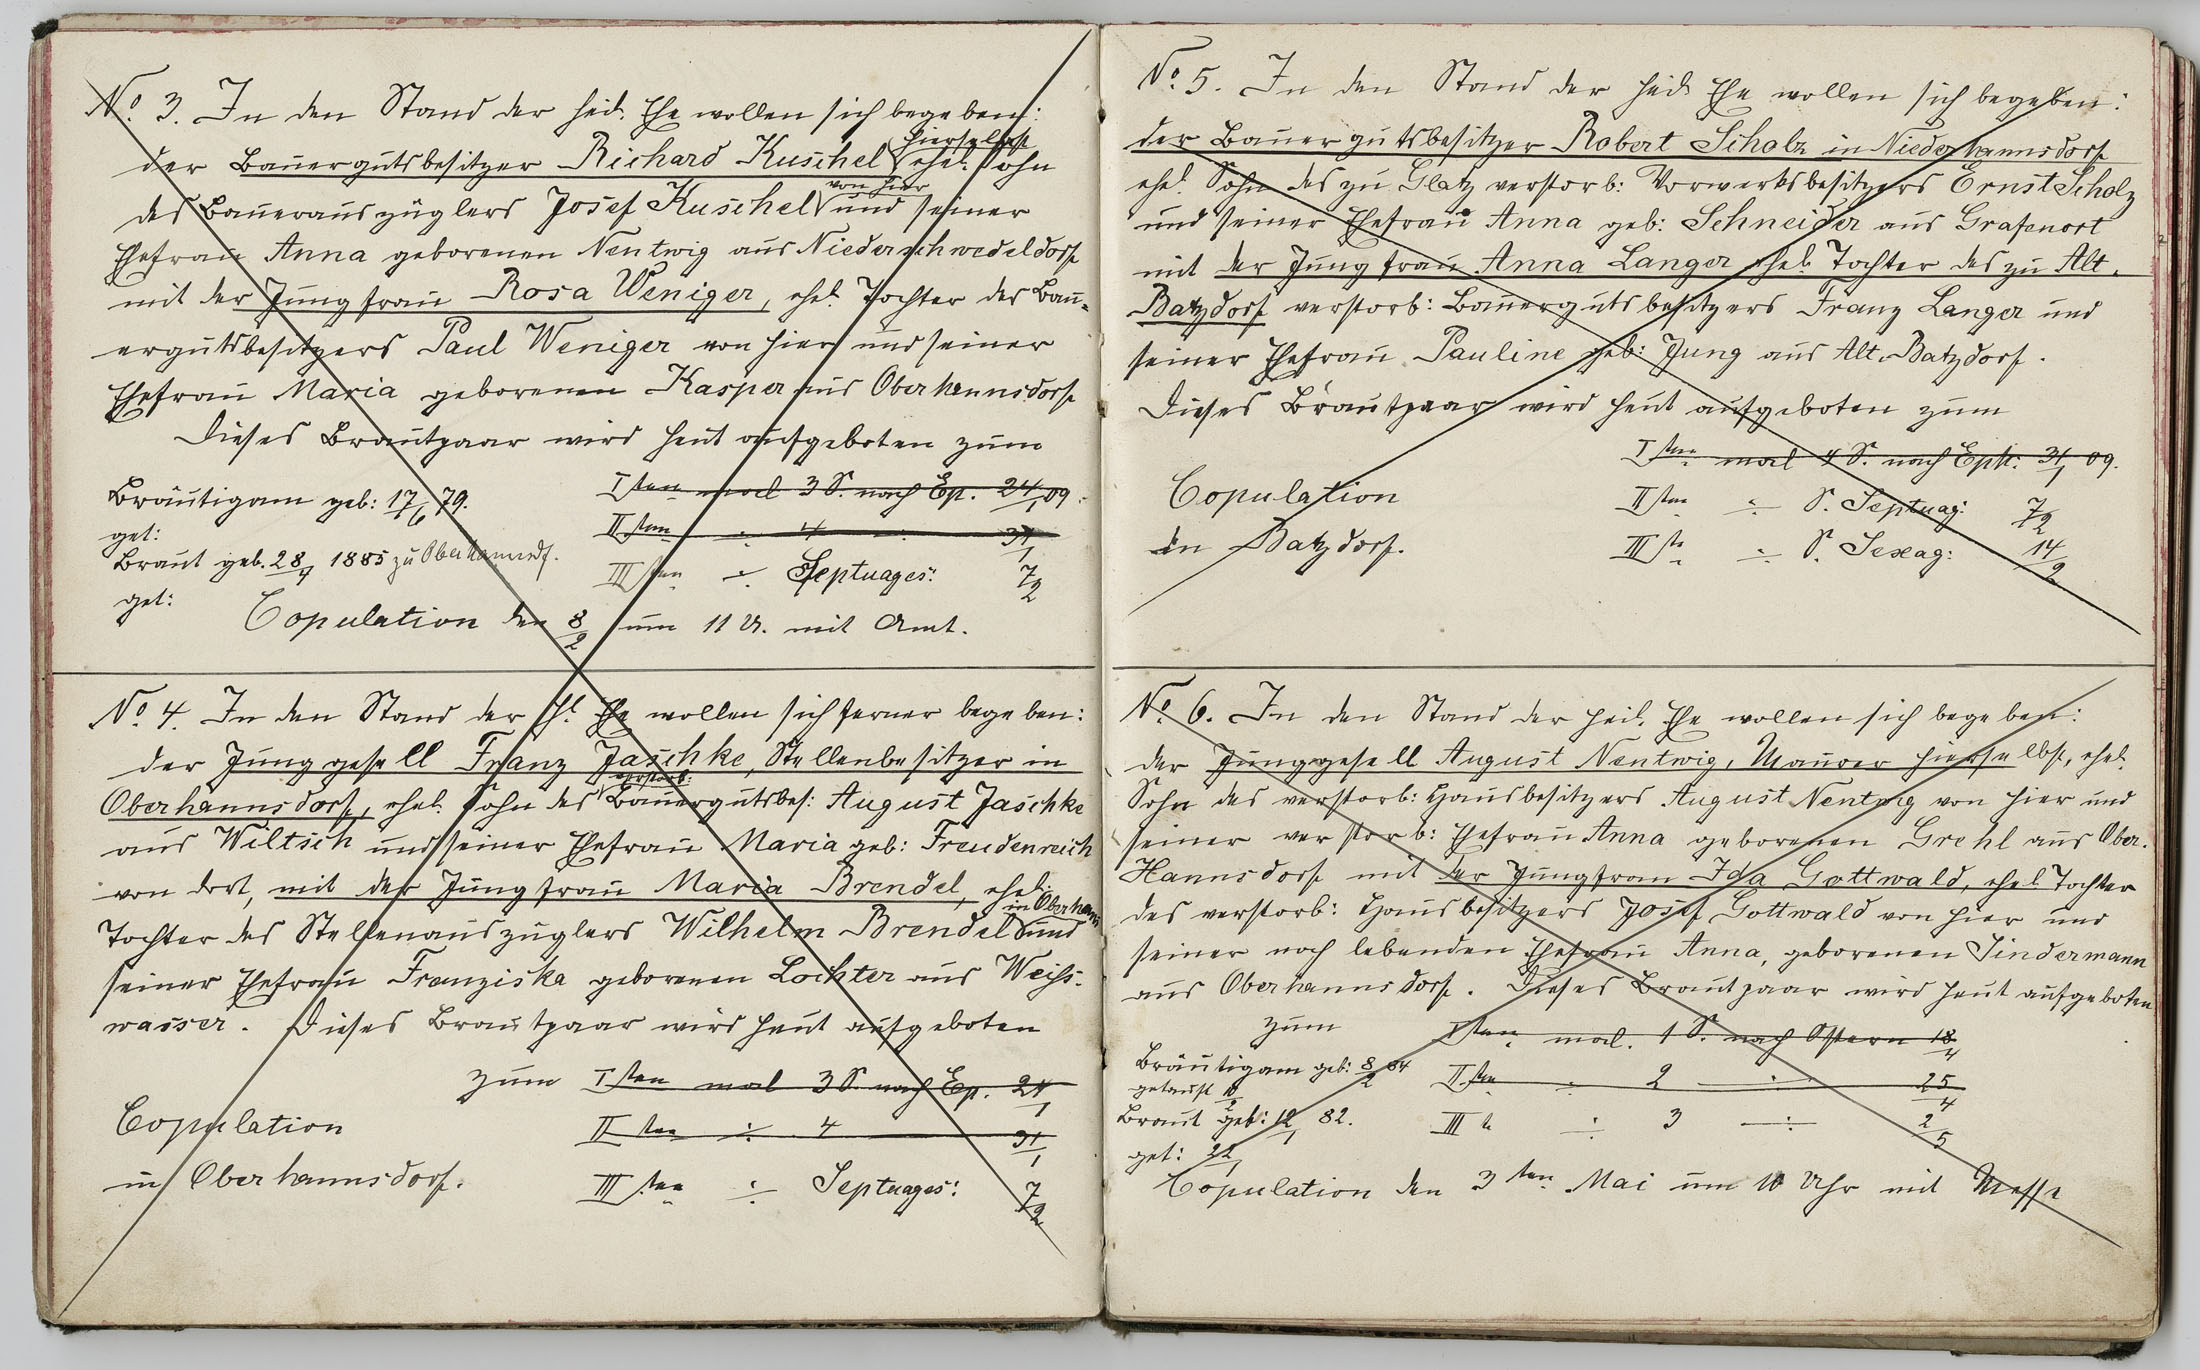 No. 3. In den Stand der heil. Ehe wollen sich begeben:
der Bauergutsbesitzer Richard Kuschel hierselbst ehel. Sohn
des Bauerauszüglers Josef Kuschel von hier und seiner
Ehefrau Anna geborenen Nentwig aus Niederschwedeldorf
mit der Jungfrau Rosa Weniger, ehel. Tochter des Bau-
ergutsbesitzers Paul Weniger von hier und seiner
Ehefrau Maria geborenen Kasper aus Oberhannsdorf
Dieses Brautpaar wird heut aufgeboten zum
Iten mal 3 S. nach Ep. 24/1 09.
Bräutigam geb: 17/6 79.
get:
IIten ÷ 4 ÷ 31/1
Braut geb. 28/4 1885 zu Oberhannsdf.
get:
IIIten ÷ Septuages: 7/2
Copulation den 8/2 um 11 U. mit Amt.
No. 4. In den Stand der hl. Ehe wollen sich ferner begeben:
der Junggesell Franz Jaschke, Stellenbesitzer in
Oberhannsdorf, ehel. Sohn des verstorb: Bauergutsbes: August Jaschke
aus Wiltsch und seiner Ehefrau Maria geb: Freudenreich
von dort, mit der Jungfrau Maria Brendel, ehel.
Tochter des Stellenauszüglers Wilhelm Brendel in Oberhann. und
seiner Ehefrau Franziska geborenen Lochter aus Weiss-
wasser. Dieses Brautpaar wird heut aufgeboten
zum Iten mal 3 S. nach Ep. 24/1
IIten ÷ 4 31/1
Copulation
in Oberhannsdorf.
IIIten ÷ Septuages: 7/2
No. 5. In den Stand der heil. Ehe wollen sich begeben:
der Bauergutsbesitzer Robert Scholz in Niederhannsdorf
ehel. Sohn des zu Glatz verstorb: Vorwerksbesitzers Ernst Scholz
und seiner Ehefrau Anna geb: Schneider aus Grafenort
mit der Jungfrau Anna Langer ehel. Tochter des zu Alt-
Batzdorf verstorb: Bauergutsbesitzers Franz Langer und
seiner Ehefrau Pauline geb: Jung aus Alt-Batzdorf.
Dieses Brautpaar wird heut aufgeboten zum
Iten mal 4 S. nach Eph: 31/1 09.
Copulation
in Batzdorf.
IIten ÷ S. Septuag: 7/2
IIIte ÷ S. Sexag: 14/2
No. 6. In den Stand der heil. Ehe wollen sich begeben:
der Junggesell August Nentwig, Maurer hierselbst, ehel.
Sohn des verstorb: Hausbesitzers August Nentwig von hier und
seiner verstorb: Ehefrau Anna geborenen Grehl aus Ober-
Hannsdorf mit der Jungfrau Ida Gottwald, ehel. Tochter
des verstorb: Hausbesitzers Josef Gottwald von hier und
seiner noch lebenden Ehefrau Anna, geborenen Sindermann
aus Oberhannsdorf. Dieses Brautpaar wird heut aufgeboten
zum Iten mal. 1 S. nach Ostern 18/4
Bräutigam geb: 8/2 84
getauft
IIten ÷ 2 ÷ 25/4
Braut geb: 12/1 82.
get: 22/1
IIIte ÷ 3 ÷ 2/5
Copulation den 3ten Mai um 10 Uhr mit Messe